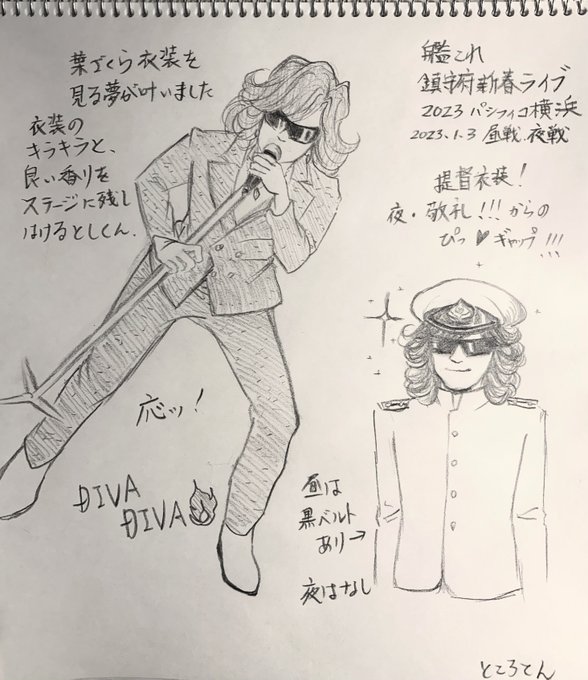 葉ざくら衣装を
見る夢が叶いました
衣装の
キラキラと、
良い香りを
ステージに残し
はけるとしくん.
艦これ
鎮守府新春ライブ
2023 パシフィコ横浜
2023.1.3 昼戦.夜戦
提督衣装!
夜・敬礼!!!からの
ぴっ♥ギャップ!!!
応ッ!
ĐIVA
ĐIVA
昼は
黒ベルト
あり→
夜はなし
ところてん